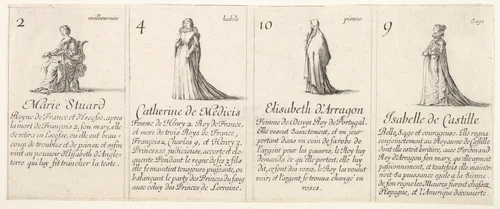 2 malheureuse
Marie Stuard
Reyne de France et d'Escosse, apres
la mort de François 2, son mary, elle
se retira en Escosse, ou elle eut beau-
coup de troubles et de peines, et enfin
vint au pouvoir d'Elisabeth d'Angle-
terre qui luy fit trancher la teste.
4 habile
Catherine de Médicis
Femme de Henry 2. Roy de France,
et mere de trois Roys de France,
François 2, Charles 9, et Henry 3.
Princesse judicieuse, accorte et elo-
quente. Pendant le regne de ses 3 fils
elle se maintint tousjours puissante, en
balançant le party des Princes du sang
avec celuy des Princes de Lorraine.
10 pieuse
Elisabeth d'Arragon
Femme de Denys Roy de Portugal.
Elle vivoit Sainctement, et un jour
portant dans un coin de sa robe de
l'argent pour les pauvres, le Roy luy
demanda ce qu'elle portoit, elle luy
dit, ce sont des roses, le Roy les voulut
voir, et l'argent se trouva changé en
roses.
9 Sage
Isabelle de Castille
Belle, Sage et courageuse. Elle regna
conjoinctement au Royaume de Castille
dont elle estoit heritiere, avec Ferdinand
Roy d'Arragon son mary, qu'elle aymoit
et patiemment, et toutesfois elle mainte-
noit sa puissance egale à la Sienne.
de son regne les Maures furent chassés
d'Espagne, et l'Amerique decouverte.